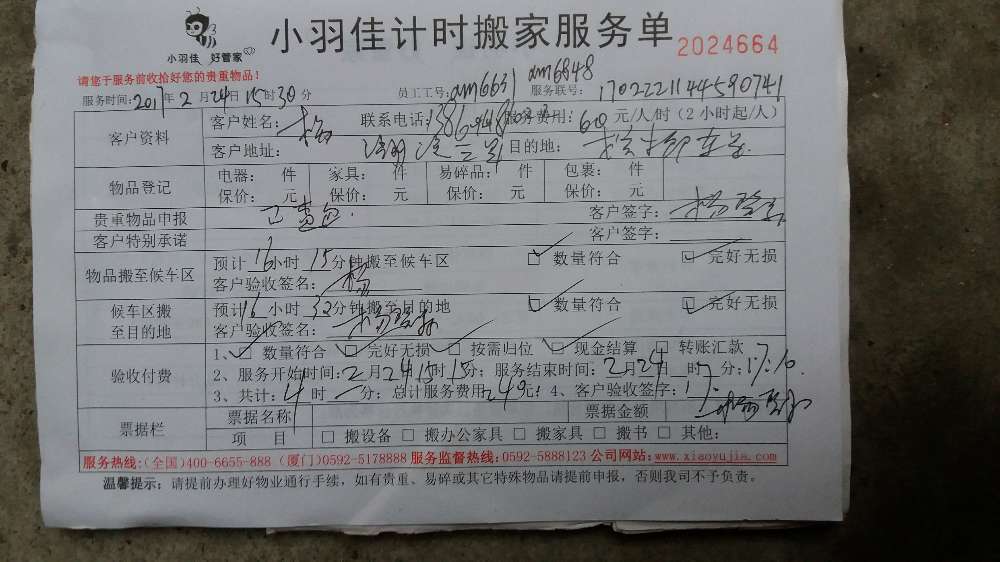 小羽佳 好管家
小羽佳计时搬家服务单 2024664
请您于服务前收拾好您的贵重物品！
服务时间：2017年2月24日15时30分 员工工号：am6631 am6848 服务联号：1702221144590741
客户资料 客户姓名：杨 联系电话： 服务费用：60元/人/时（2小时起/人）
客户地址： 目的地：
物品登记 电器： 件 家具： 件 易碎品： 件 包裹： 件
保价： 元 保价： 元 保价： 元 保价： 元
贵重物品申报 客户签字：
客户特别承诺 客户签字：
物品搬至候车区 预计16小时15分钟搬至候车区 □ 数量符合 □ 完好无损
客户验收签名：杨
候车区搬至目的地 预计16小时32分钟搬至目的地 □ 数量符合 □ 完好无损
客户验收签名：
验收付费 1、□ 数量符合 □ 完好无损 □ 按需归位 □ 现金结算 □ 转账汇款
2、服务开始时间：2月24日15时15分；服务结束时间：2月24日 时 分；
3、共计：4时 分；总计服务费用 元；4、客户验收签字：
票据栏 票据名称 票据金额
项 目 □ 搬设备 □ 搬办公家具 □ 搬家具 □ 搬书 □ 其他：
服务热线：(全国)400-6655-888 (厦门)0592-5178888 服务监督热线：0592-5888123 公司网站：www.xiaoyujia.com
温馨提示：请提前办理好物业通行手续，如有贵重、易碎或其它特殊物品请提前申报，否则我司不予负责。